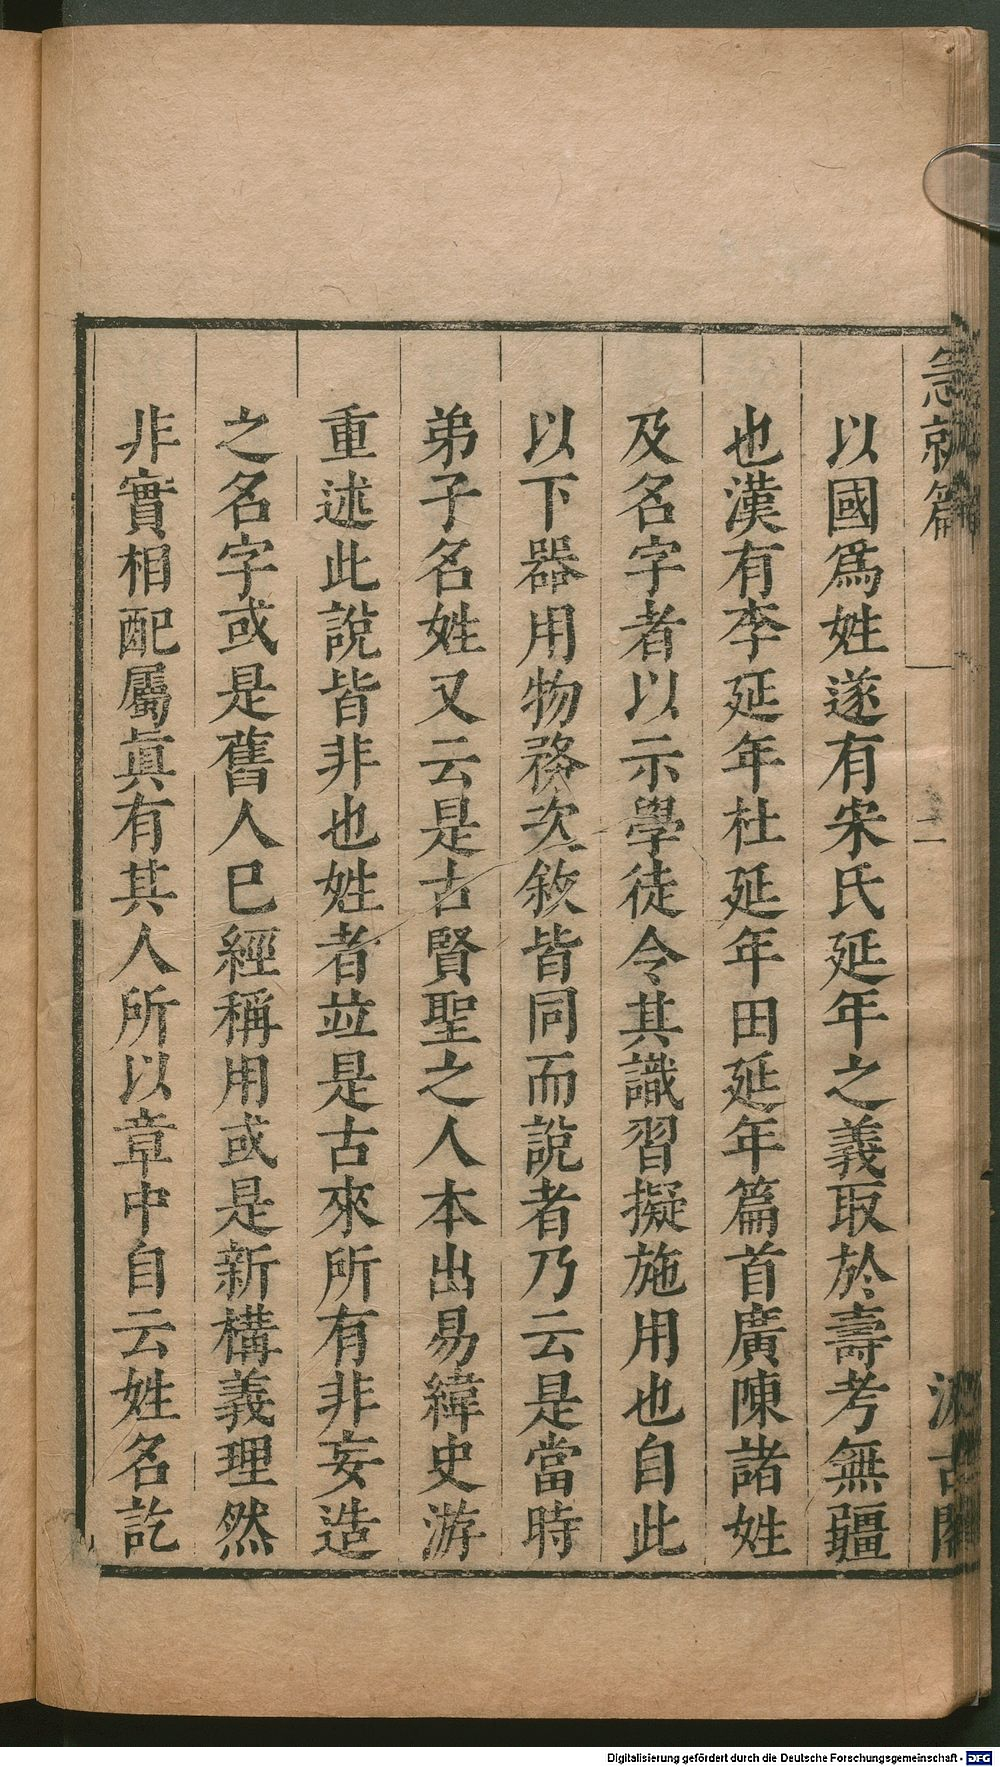 急就篇 一 二 汲古閣
以國爲姓遂有宋氏延年之義取於壽考無疆
也漢有李延年杜延年田延年篇首廣陳諸姓
及名字者以示學徒令其識習擬施用也自此
以下器用物務次敘皆同而說者乃云是當時
弟子名姓又云是古賢聖之人本出易緯史游
重述此說皆非也姓者竝是古來所有非妄造
之名字或是舊人已經稱用或是新構義理然
非實相配屬眞有其人所以章中自云姓名訖
Digitalisierung gefördert durch die Deutsche Forschungsgemeinschaft - DFG